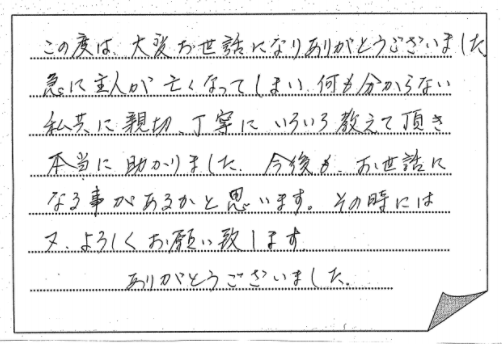 この度は、大変お世話になりありがとうございました
急に主人が亡くなってしまい、何も分からない
私共に親切、丁寧にいろいろ教えて頂き
本当に助かりました。今後も、お世話に
なる事があるかと思います。その時には
又、よろしくお願い致します
ありがとうございました。